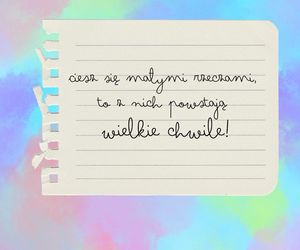 ciesz się małymi rzeczami,
to z nich powstają
wielkie chwile!